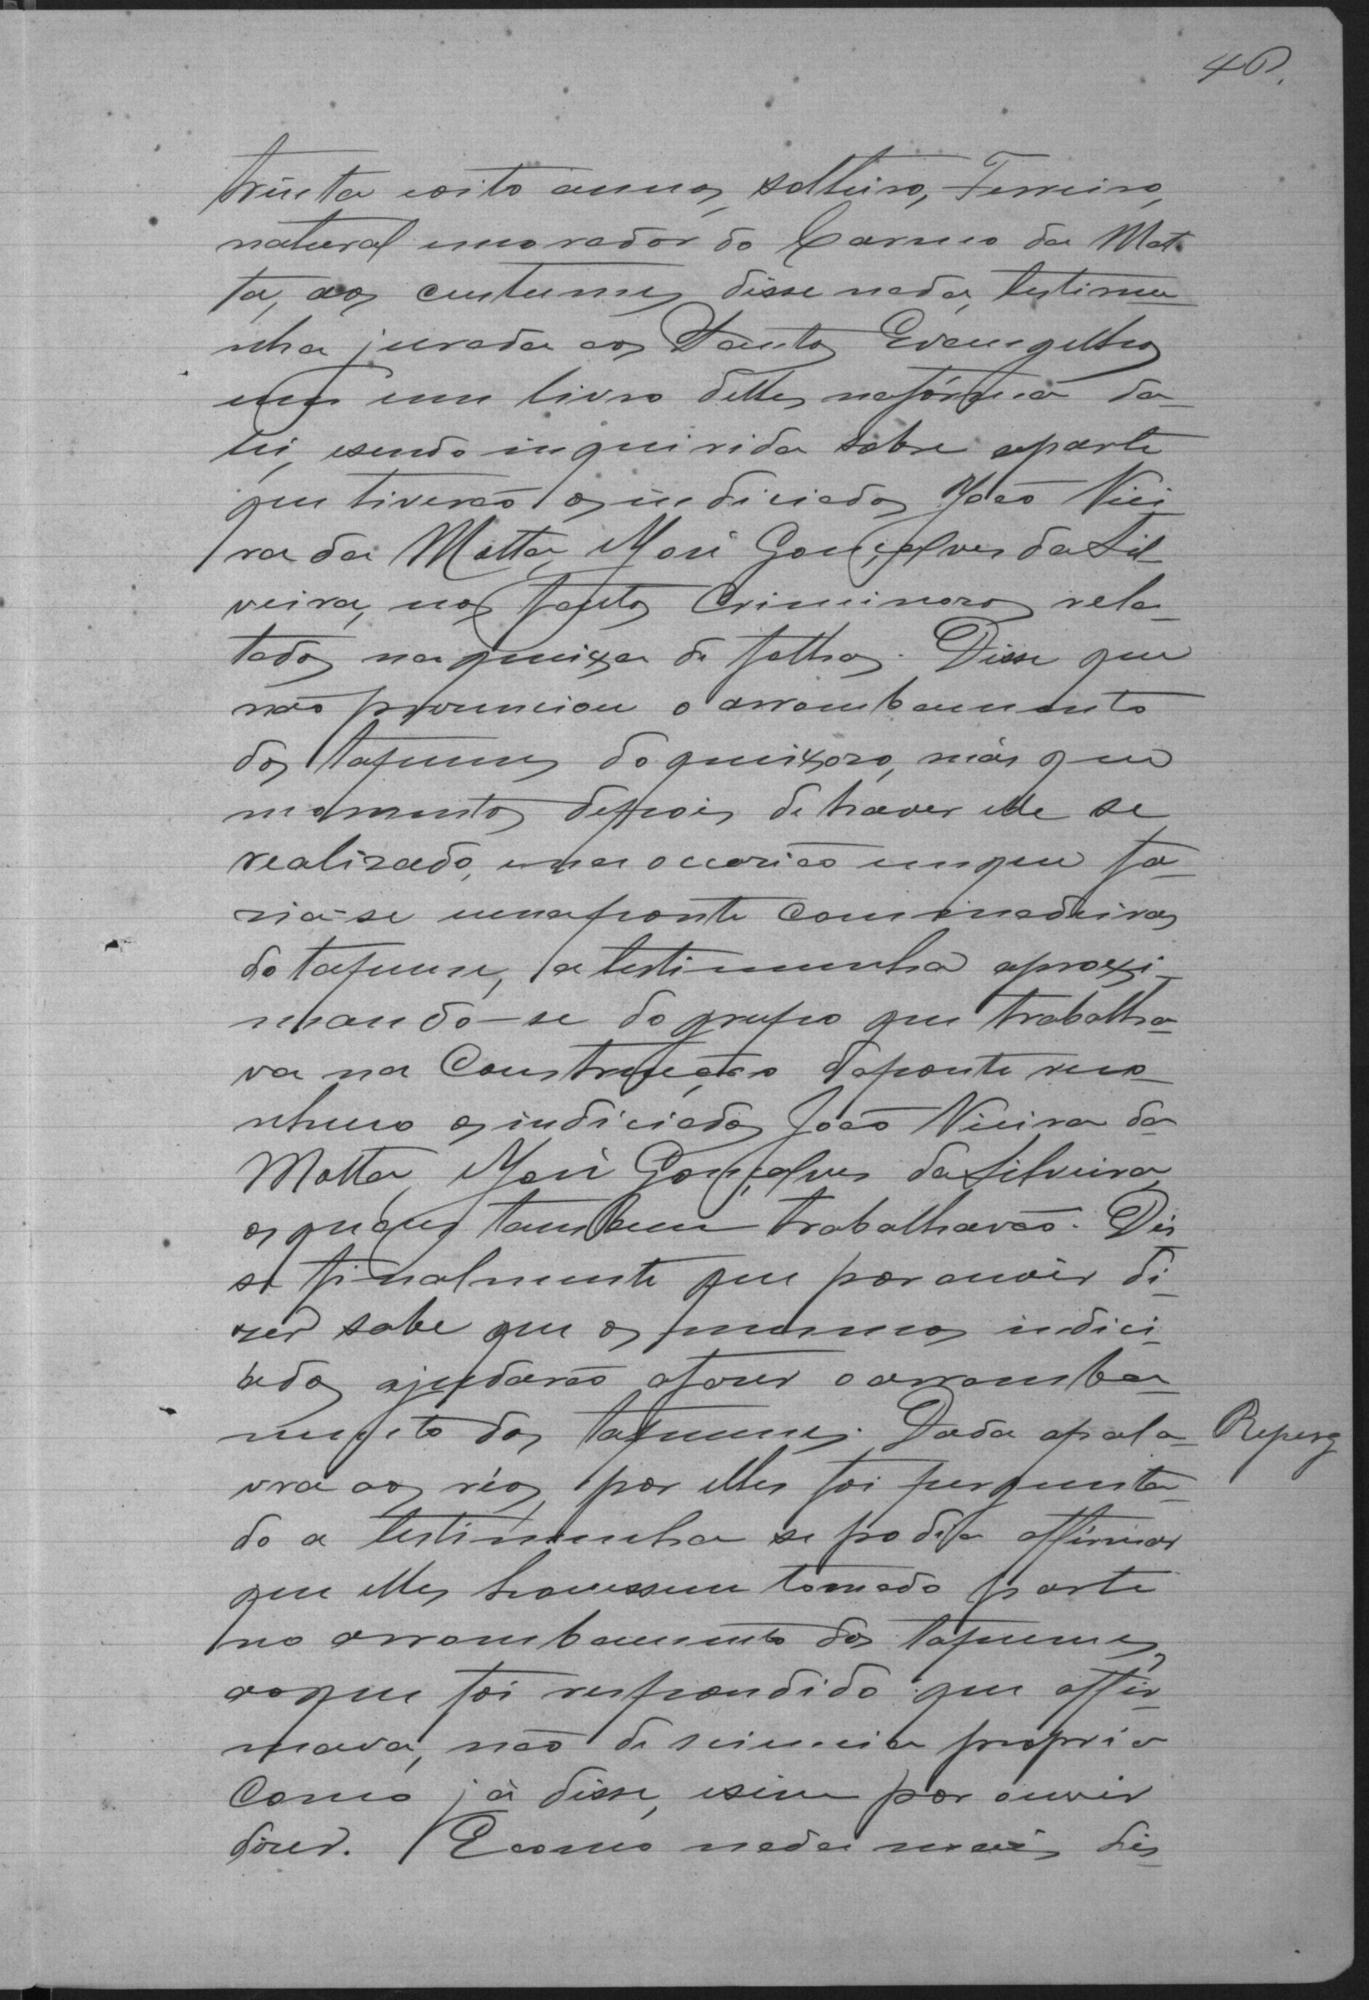 40.
trinta e oito annos, solteiro, Ferreiro,
natural e morador do Carmo da Mat-
ta, aos custumes disse nada, testimu-
nha jurada aos Santos Evangelhos
em um livro delles na fórma da
lei, e sendo inquirida sobre a parte
que tiverão os indiciados João Viei-
ra da Motta, e José Gonçalves da Sil-
veira, nos factos criminosos rela-
tados na queixa de folhas. Disse que
não prezenciou o arrombamento
dos tapumes do queixoso, más que
momentos depois de haver elle se
realizado, e na occasião em que fa-
sia-se uma ponte com madeiras
do tapume, a testimunha aproxi-
mando-se do grupo que trabalha-
va na construcção da ponte reco-
nheceo os indiciados João Vieira da
Motta, e José Gonçalves da Silveira,
os quaes tambem trabalhavão. Dis-
se finalmente que por ouvir di-
zer sabe que os mesmos indici-
ados ajudarão a fazer o arromba-
mento dos tapumes. Dada a pala- Reperg
vra aos réos, por elles foi pergunta-
do a testimunha se podia affirmar
que elles houvessem tomado parte
no arrombamento dos tapumes,
ao que foi respondido que affir-
mava, não de sciencia propria
como já disse, e sim por ouvir
dizer. E como nada mais dis-